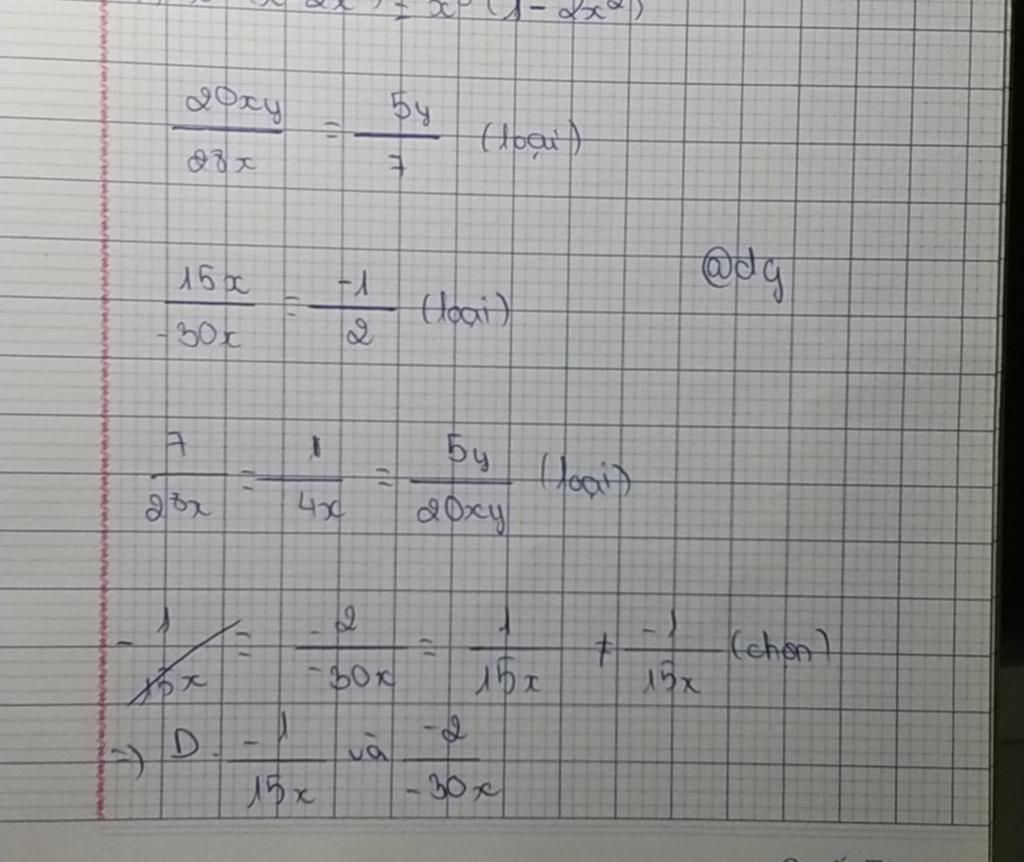 = x (1 - 2x²)
20xy/28x = 5y/7 (loại)
@dg
15x/-30x = -1/2 (loại)
7/28x = 1/4x = 5y/20xy (loại)
-2/-30x = 1/15x ≠ -1/15x (chọn)
=) D. -1/15x và -2/-30x